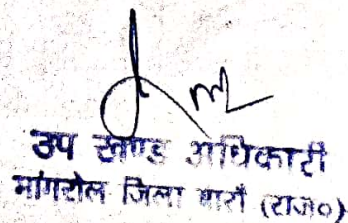 उप खण्ड अधिकारी
मांगरोल जिला बाराँ (राज०)